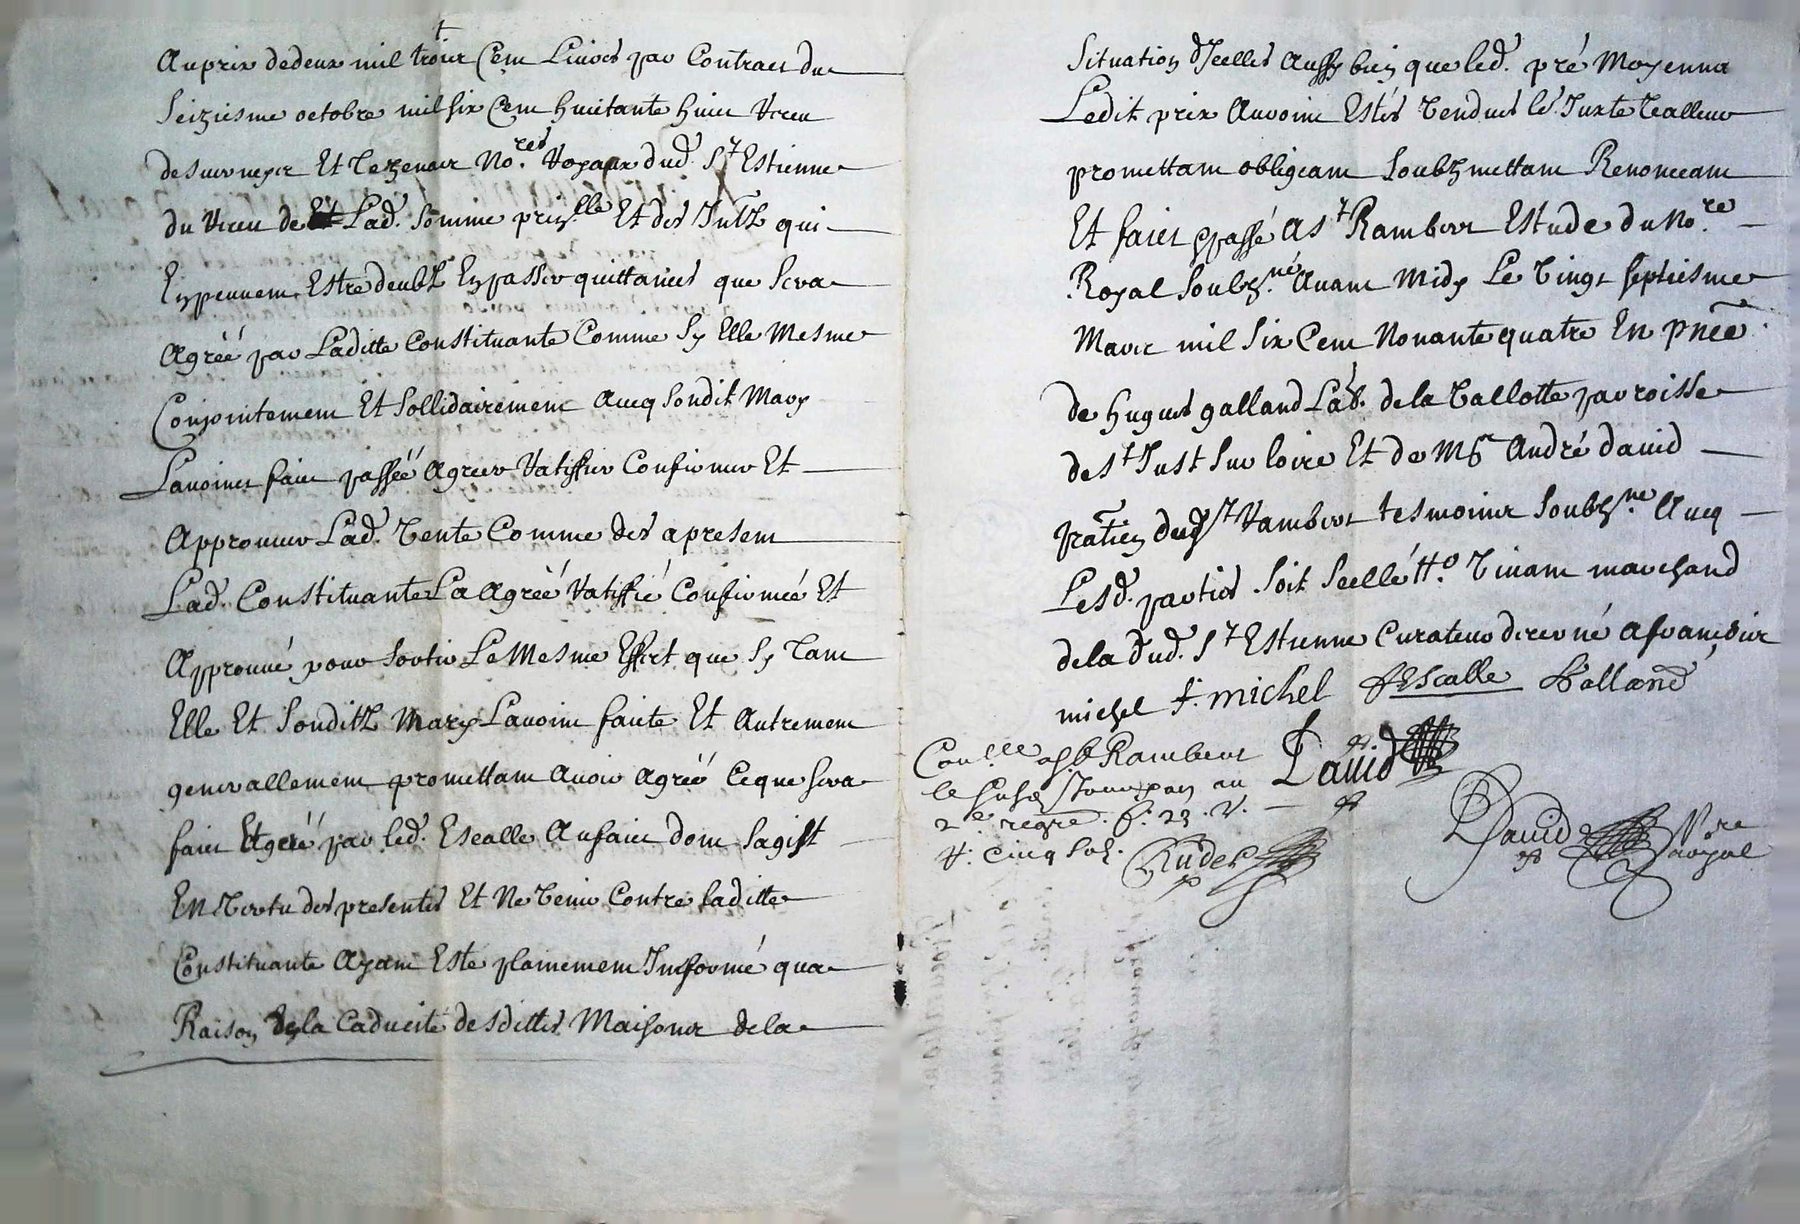 Au prix de deux mil trois Cent Livres par Contract du
Seiziesme octobre mil six Cent huitante huict Receu
de Et No.res Royaux dud. St Estienne
du Receu de Lad. Somme prin.lle Et des Intz qui
En peuvent Estre deubz En passer quittances que Sera
Agréé par Laditte Constituante Comme Sy Elle Mesme
Conjointement Et Sollidairement Avecq Sondit Mary
L'avoient faict passéé Agreer Ratiffier Confirmer Et
Approuver Lad. Vente Comme des a present
Lad. Constituante L'a Agréé Ratiffié Confirméé Et
Approuvé pour Sortir Le Mesme Effect que Sy Tant
Elle Et Sonditz Mary L'avoint faicte Et Autrement
generallement promettant Avoir Agréé Ce que Sera
faict Et géré par led. Escalle Au faict dont S'agist
En Vertu des presentes Et Ne Venir Contre Laditte
Constituante Ayant Esté plainement Informé qua
Raison de la Caducité desdittes Maisons de la
Situation d'Icelles Aussy bien que led. pré Moyennant
Ledit prix Avoint Estés Vendues le Juste Valleur
promettant obligeant Soubzmettant Renonceant
Et faict & passé A St Rambert Estude du No.re
Royal Soubz.né Avant Midy Le Vingt Septiesme
Mars mil Six Cent Nonante quatre En pnce
de hugues galland Lab. de la Vallotte parroisse
de St Just Sur loire Et de Me André david
praticien dud St Rambert tesmoins Soubz.nes Avecq
Lesd. parties Soit Scellé Ho. Vivant marchand
de la dud. St Estienne Curateur decerné A francois
michel F. michel Descalle Galland
Con.lle a St Rambert David
le
2e regre. f. 23. V.
R. cinq Solz. David No.re
Royal